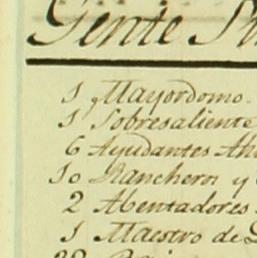 Gente
1 Mayordomo.
1 Sobresaliente
6 Ayudantes
10 Rancheros y
2 Abentadores
1 Maestro de